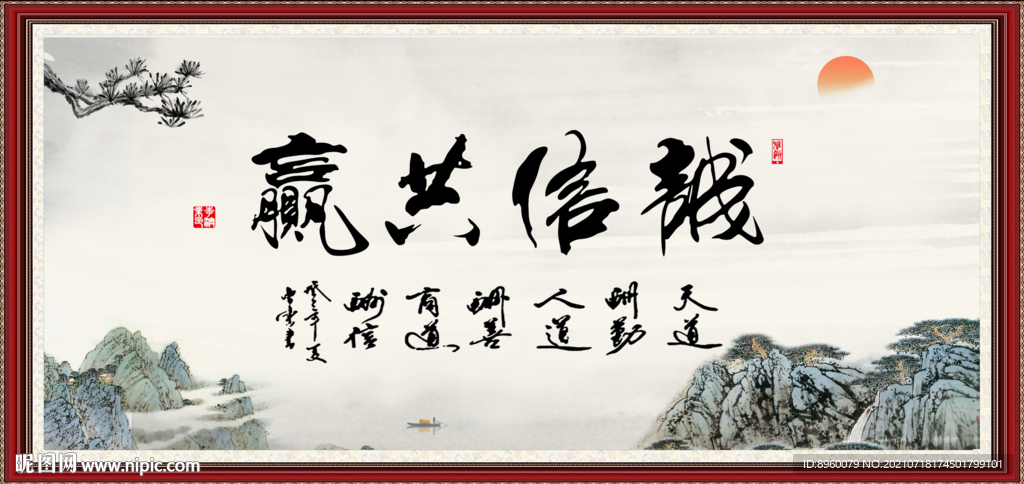 誠信共贏
天道
酬勤
人道
酬善
商道
酬信
昵图网 www.nipic.com
ID:8960079 NO:20210718174501799101